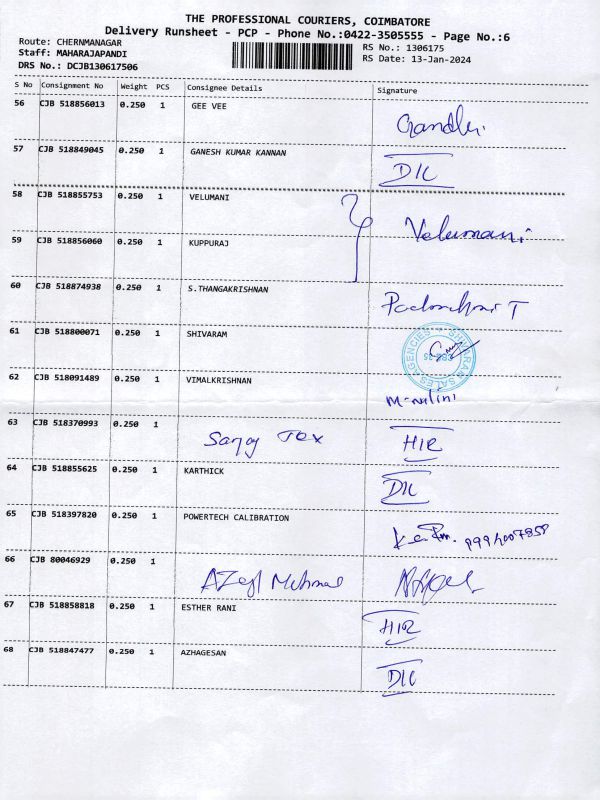 THE PROFESSIONAL COURIERS, COIMBATORE
Delivery Runsheet - PCP - Phone No.:0422-3505555 - Page No.:6
Route: CHERNMANAGAR
Staff: MAHARAJAPANDI
DRS No.: DCJB130617506
RS No.: 1306175
RS Date: 13-Jan-2024
S No Consignment No Weight PCS Consignee Details Signature
56 CJB 518856013 0.250 1 GEE VEE Gandhi
57 CJB 518849045 0.250 1 GANESH KUMAR KANNAN DIL
58 CJB 518855753 0.250 1 VELUMANI Velumani
59 CJB 518856060 0.250 1 KUPPURAJ
60 CJB 518874938 0.250 1 S.THANGAKRISHNAN T
61 CJB 518800071 0.250 1 SHIVARAM SALES AGENCIES
62 CJB 518091489 0.250 1 VIMALKRISHNAN M-nalini
63 CJB 518370993 0.250 1 Sanjay Tex HIR
64 CJB 518855625 0.250 1 KARTHICK DIL
65 CJB 518397820 0.250 1 POWERTECH CALIBRATION
66 CJB 80046929 0.250 1
67 CJB 518858818 0.250 1 ESTHER RANI HIR
68 CJB 518847477 0.250 1 AZHAGESAN DIL